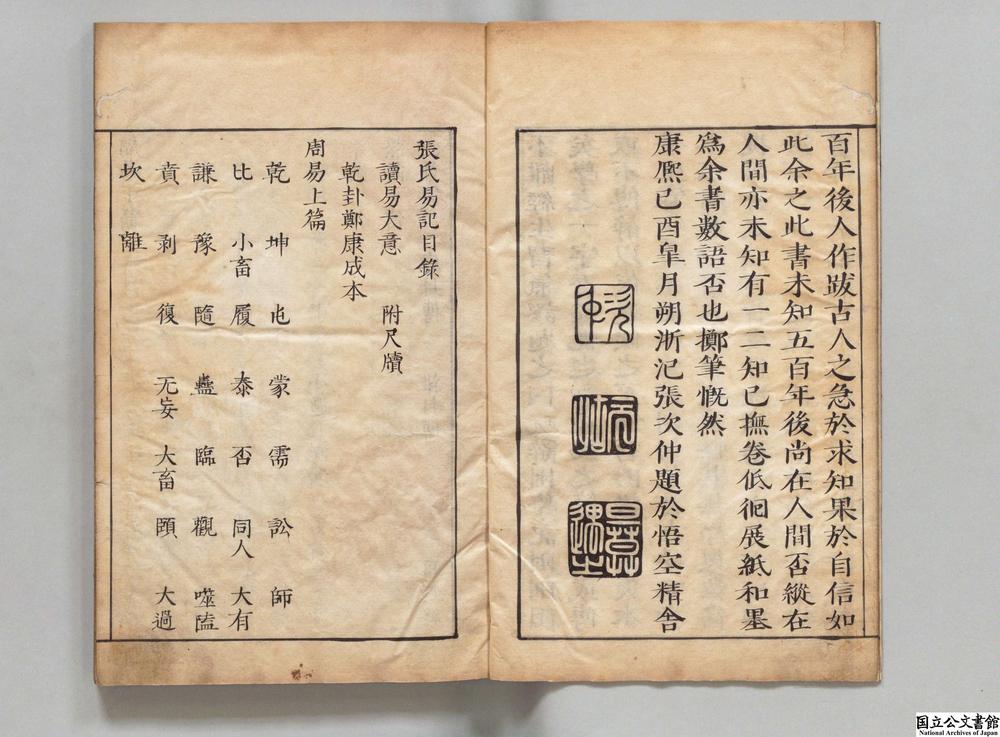 百年後人作跋古人之急於求知果於自信如
此余之此書未知五百年後尚在人間否縱在
人間亦未知有一二知己撫卷低徊展紙和墨
爲余書數語否也擲筆慨然
康熙己酉皐月朔浙汜張次仲題於悟空精舍
張氏易記目錄
讀易大意 附尺牘
乾卦鄭康成本
周易上篇
乾 坤 屯 蒙 需 訟 師
比 小畜 履 泰 否 同人 大有
謙 豫 隨 蠱 臨 觀 噬嗑
賁 剥 復 无妄 大畜 頤 大過
坎 離
国立公文書館
National Archives of Japan